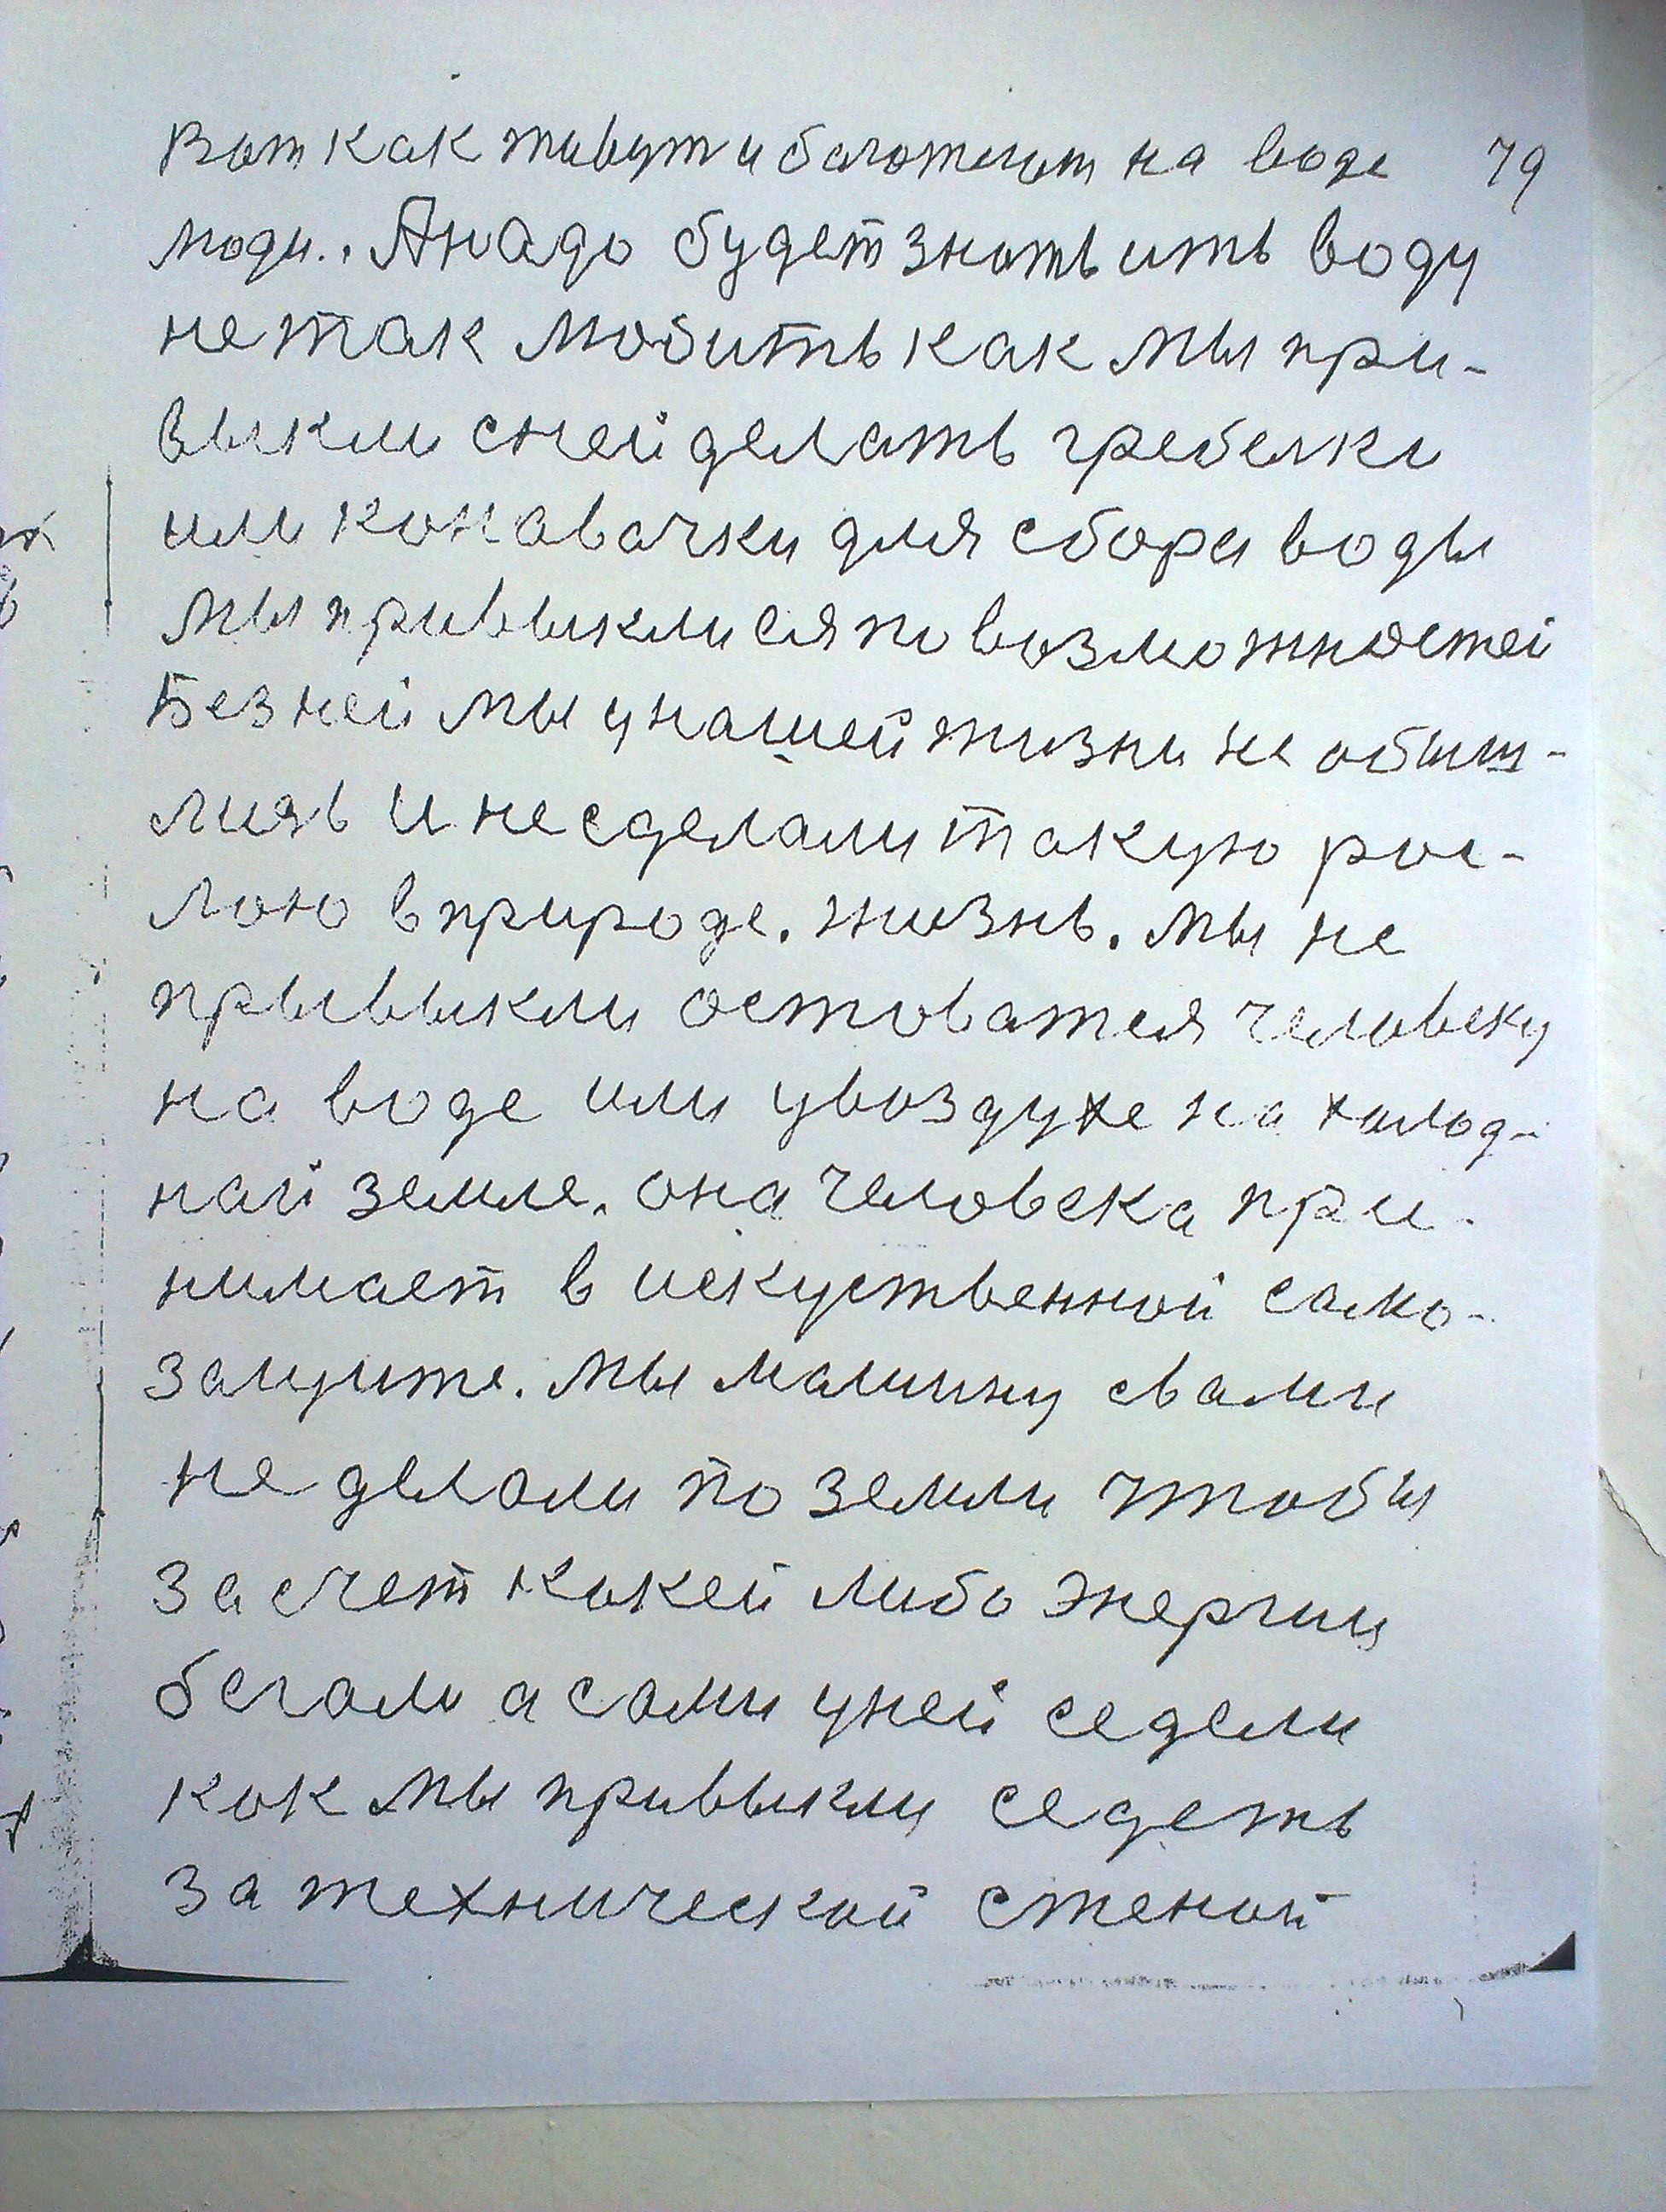 Вот как живут и богатеют на воде 79
люди.. А надо будет знать ить воду
не так любить как мы при-
выкли с ней делать гребелки
или конавачки для сбора воды
мы привыклися по возможностей
Без ней мы у нашей жизни не обыш-
лизь и не сделали такую рос-
лою в природе. жизнь. мы не
прывыкли остоватся человеку
на воде или увоздухе на холод-
най земле. она человека при-
нимает в искуственной само-
защите. мы машину свами
не делали по земли чтобы
за счет какей либо энергии
бегали а сами уней седели
как мы привыкли седеть
за технической стеной